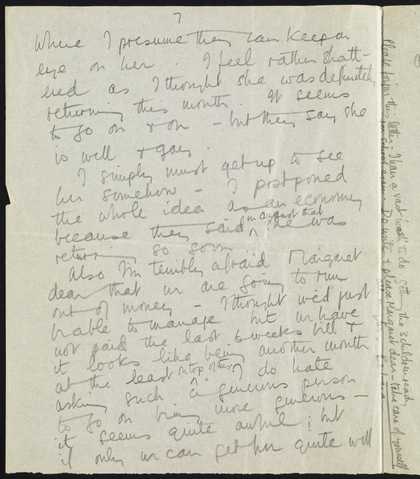 7
Where I presume they can keep an
eye on her. I feel rather shatt-
ered as I thought she was definitely
returning this month. It seems
to go on & on - but they say she
is well & gay.
I simply must get up to see
her somehow - I postponed
the whole idea as an economy
because they said in August that she was
returning so soon.
Also I'm terribly afraid Margaret
dear that we are going to run
out of money - I thought we'd just
be able to manage but we have
not paid the last 6 weeks bill &
it looks like being another month
at the least on top of that. I do hate
asking such a generous person
to go on being more generous -
it seems quite awful; but
if only we can get her quite well
Please forgive this letter - I have a vast wash to do & getting the children ready
Do write & please Margaret dear - take care of yourself